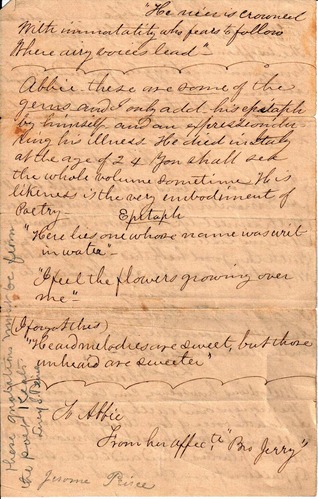 "He ne'er is crowned
With immortality, who fears to follow
Where airy voices lead"
Abbie these are some of the
gems and I only add his epitaph
by himself and an expression du-
ring his illness. He died in Italy
at the age of 24 You shall see
the whole volume sometime His
likeness is the very embodiment of
Poetry—
Epitaph
"Here lies one whose name was writ
in water"—
"I feel the flowers growing over
me"—
(I forgot this)
"Heard melodies are sweet, but those
unheard are sweeter"
To Abbie
From her affec.te "Bro Jerry"
Jerome
These quotations must be from
the poet Keats.